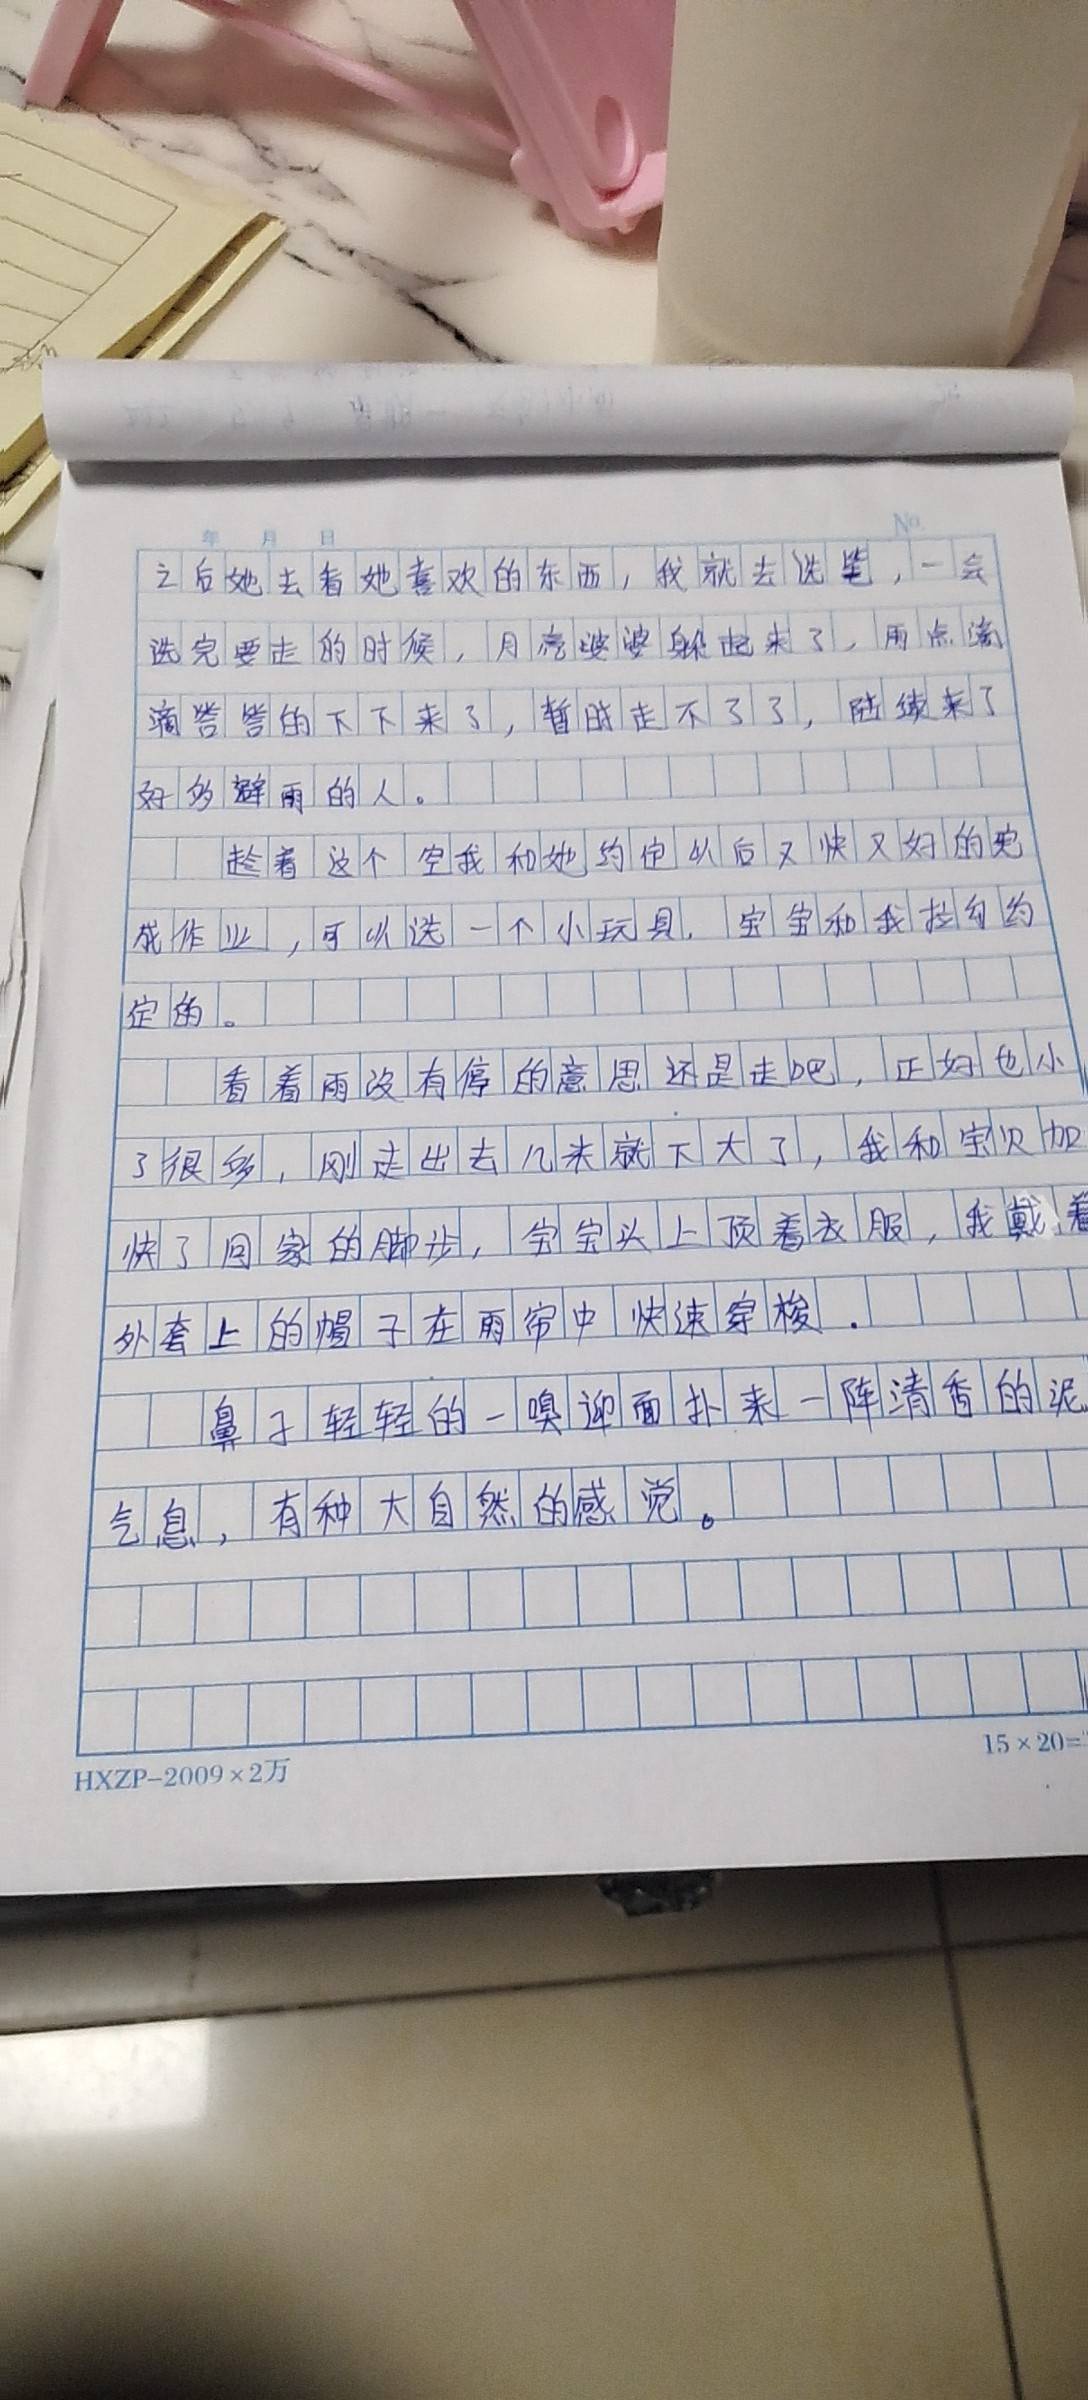 年 月 日 No.
之后她去看她喜欢的东西，我就去选笔，一会
选完要走的时候，月亮婆婆躲起来了，雨点滴
滴答答的下下来了，暂时走不了了，陆续来了
好多避雨的人。
趁着这个空我和她约定以后又快又好的完
成作业，可以选一个小玩具，宝宝和我拉勾约
定的。
看着雨没有停的意思还是走吧，正好也小
了很多，刚走出去几米就下大了，我和宝贝加
快了回家的脚步，宝宝头上顶着衣服，我戴着
外套上的帽子在雨帘中快速穿梭.
鼻子轻轻的一嗅迎面扑来一阵清香的泥
气息，有种大自然的感觉。
HXZP-2009×2万
15×20=